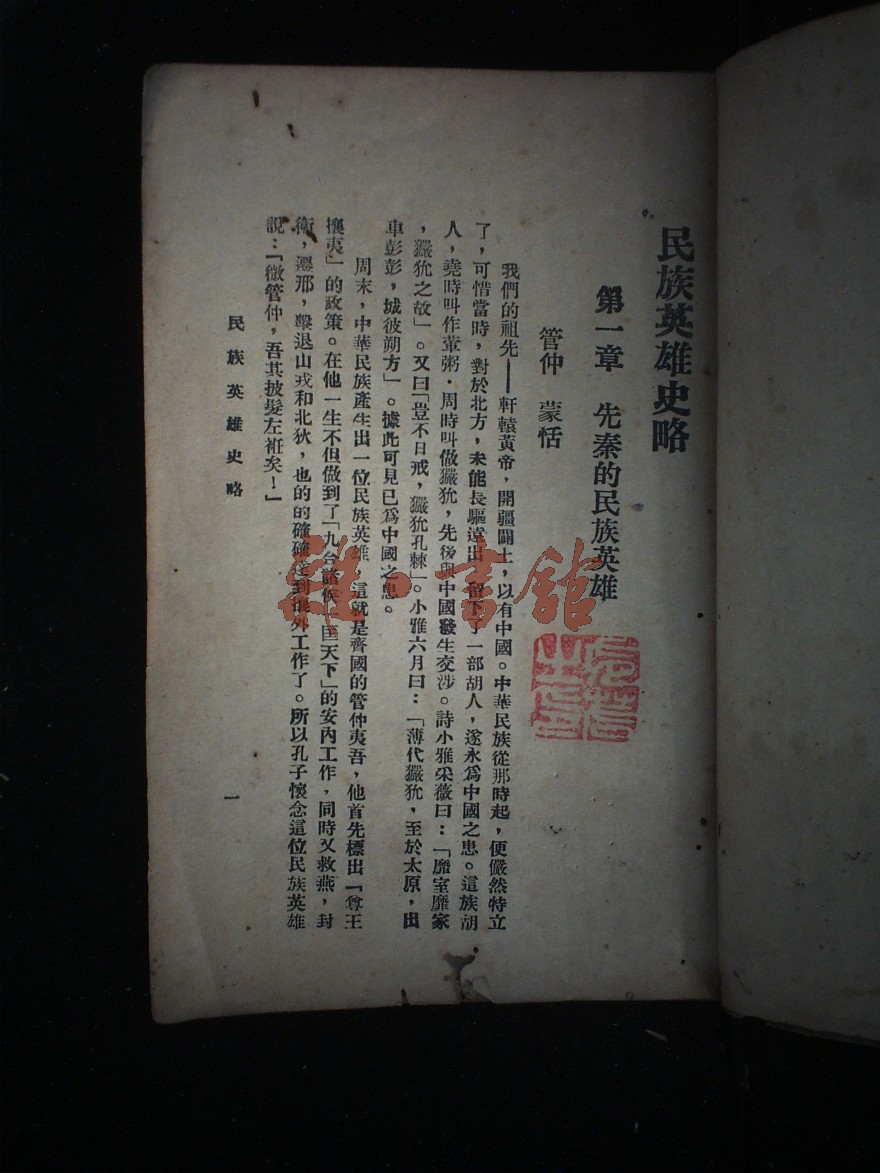 民族英雄史略
第一章　先秦的民族英雄
管仲　蒙恬
我們的祖先——軒轅黃帝，開疆闢土，以有中國。中華民族從那時起，便儼然特立
了，可惜當時，對於北方，未能長驅遠出，留下了一部胡人，遂永爲中國之患。這族胡
人，堯時叫作葷粥．周時叫做玁狁，先後與中國發生交涉。詩小雅采薇曰：「靡室靡家
，玁狁之故」。又曰「豈不日戒，玁狁孔棘」。小雅六月曰：「薄代玁狁，至於太原，出
車彭彭，城彼朔方」。據此可見已爲中國之患。
周末，中華民族產生出一位民族英雄，這就是齊國的管仲夷吾，他首先標出「尊王
攘夷」的政策。在他一生不但做到了「九合諸侯一匡天下」的安內工作，同時又救燕，封
衛，遷邢，擊退山戎和北狄，也的的確確達到攘外工作了。所以孔子懷念這位民族英雄
說：「微管仲，吾其披髮左衽矣！」
民族英雄史略
一
雜·書館